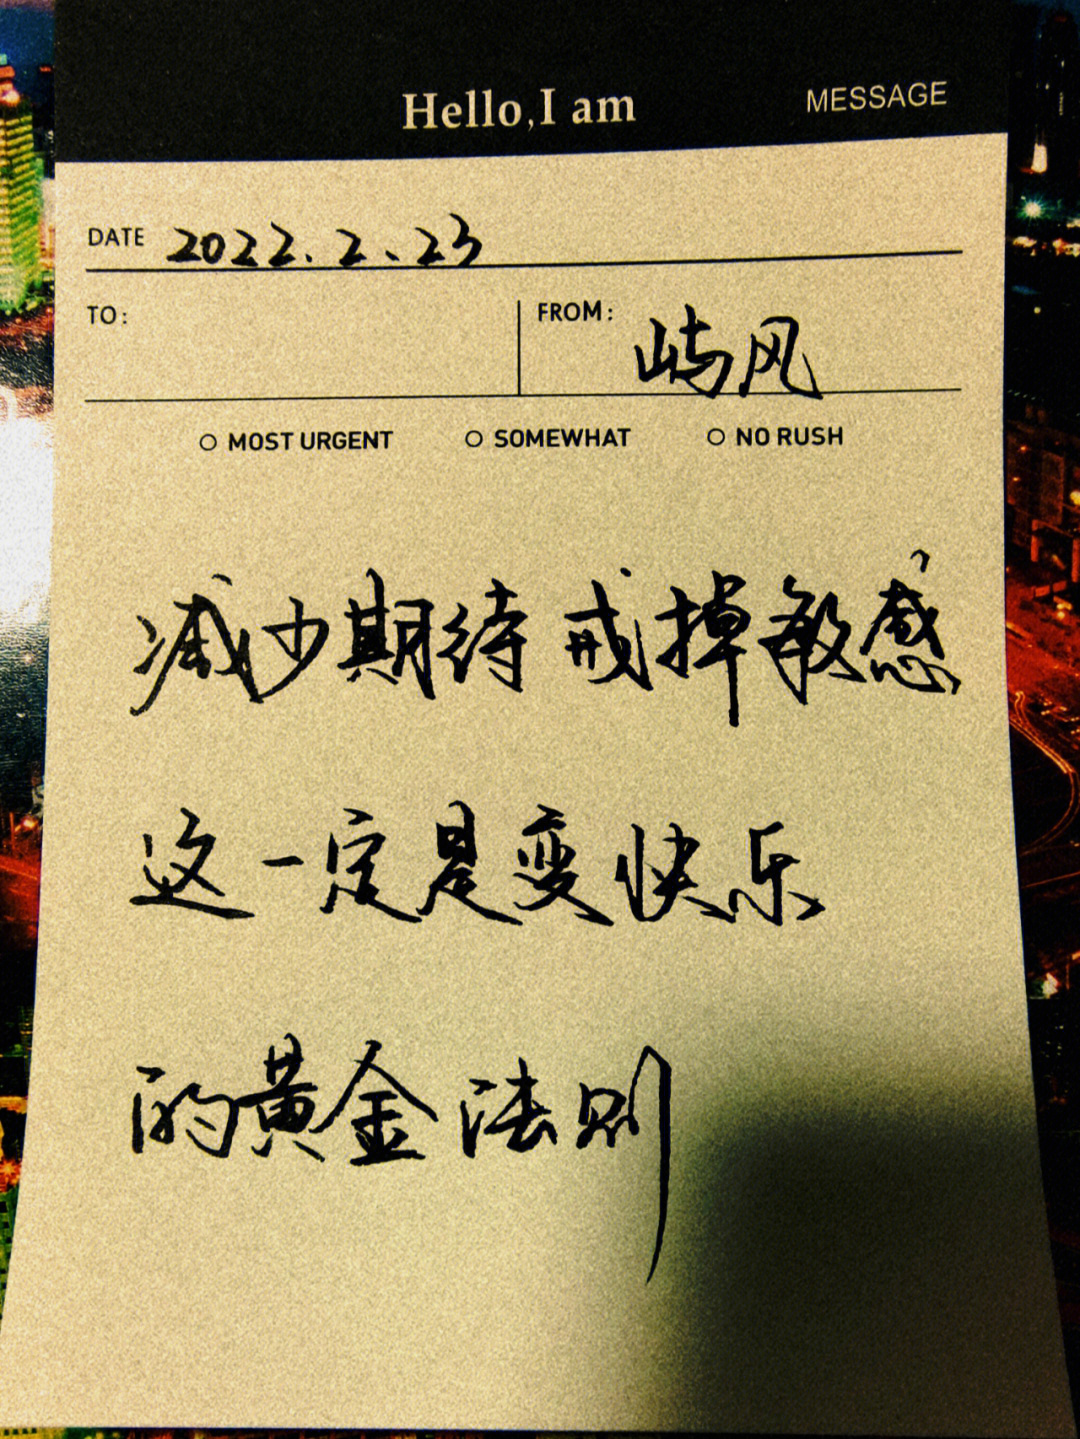 Hello,I am
MESSAGE
DATE 2022.2.23
TO:
FROM: 屿风
MOST URGENT SOMEWHAT NO RUSH
减少期待 戒掉敏感
这一定是变快乐
的黄金法则